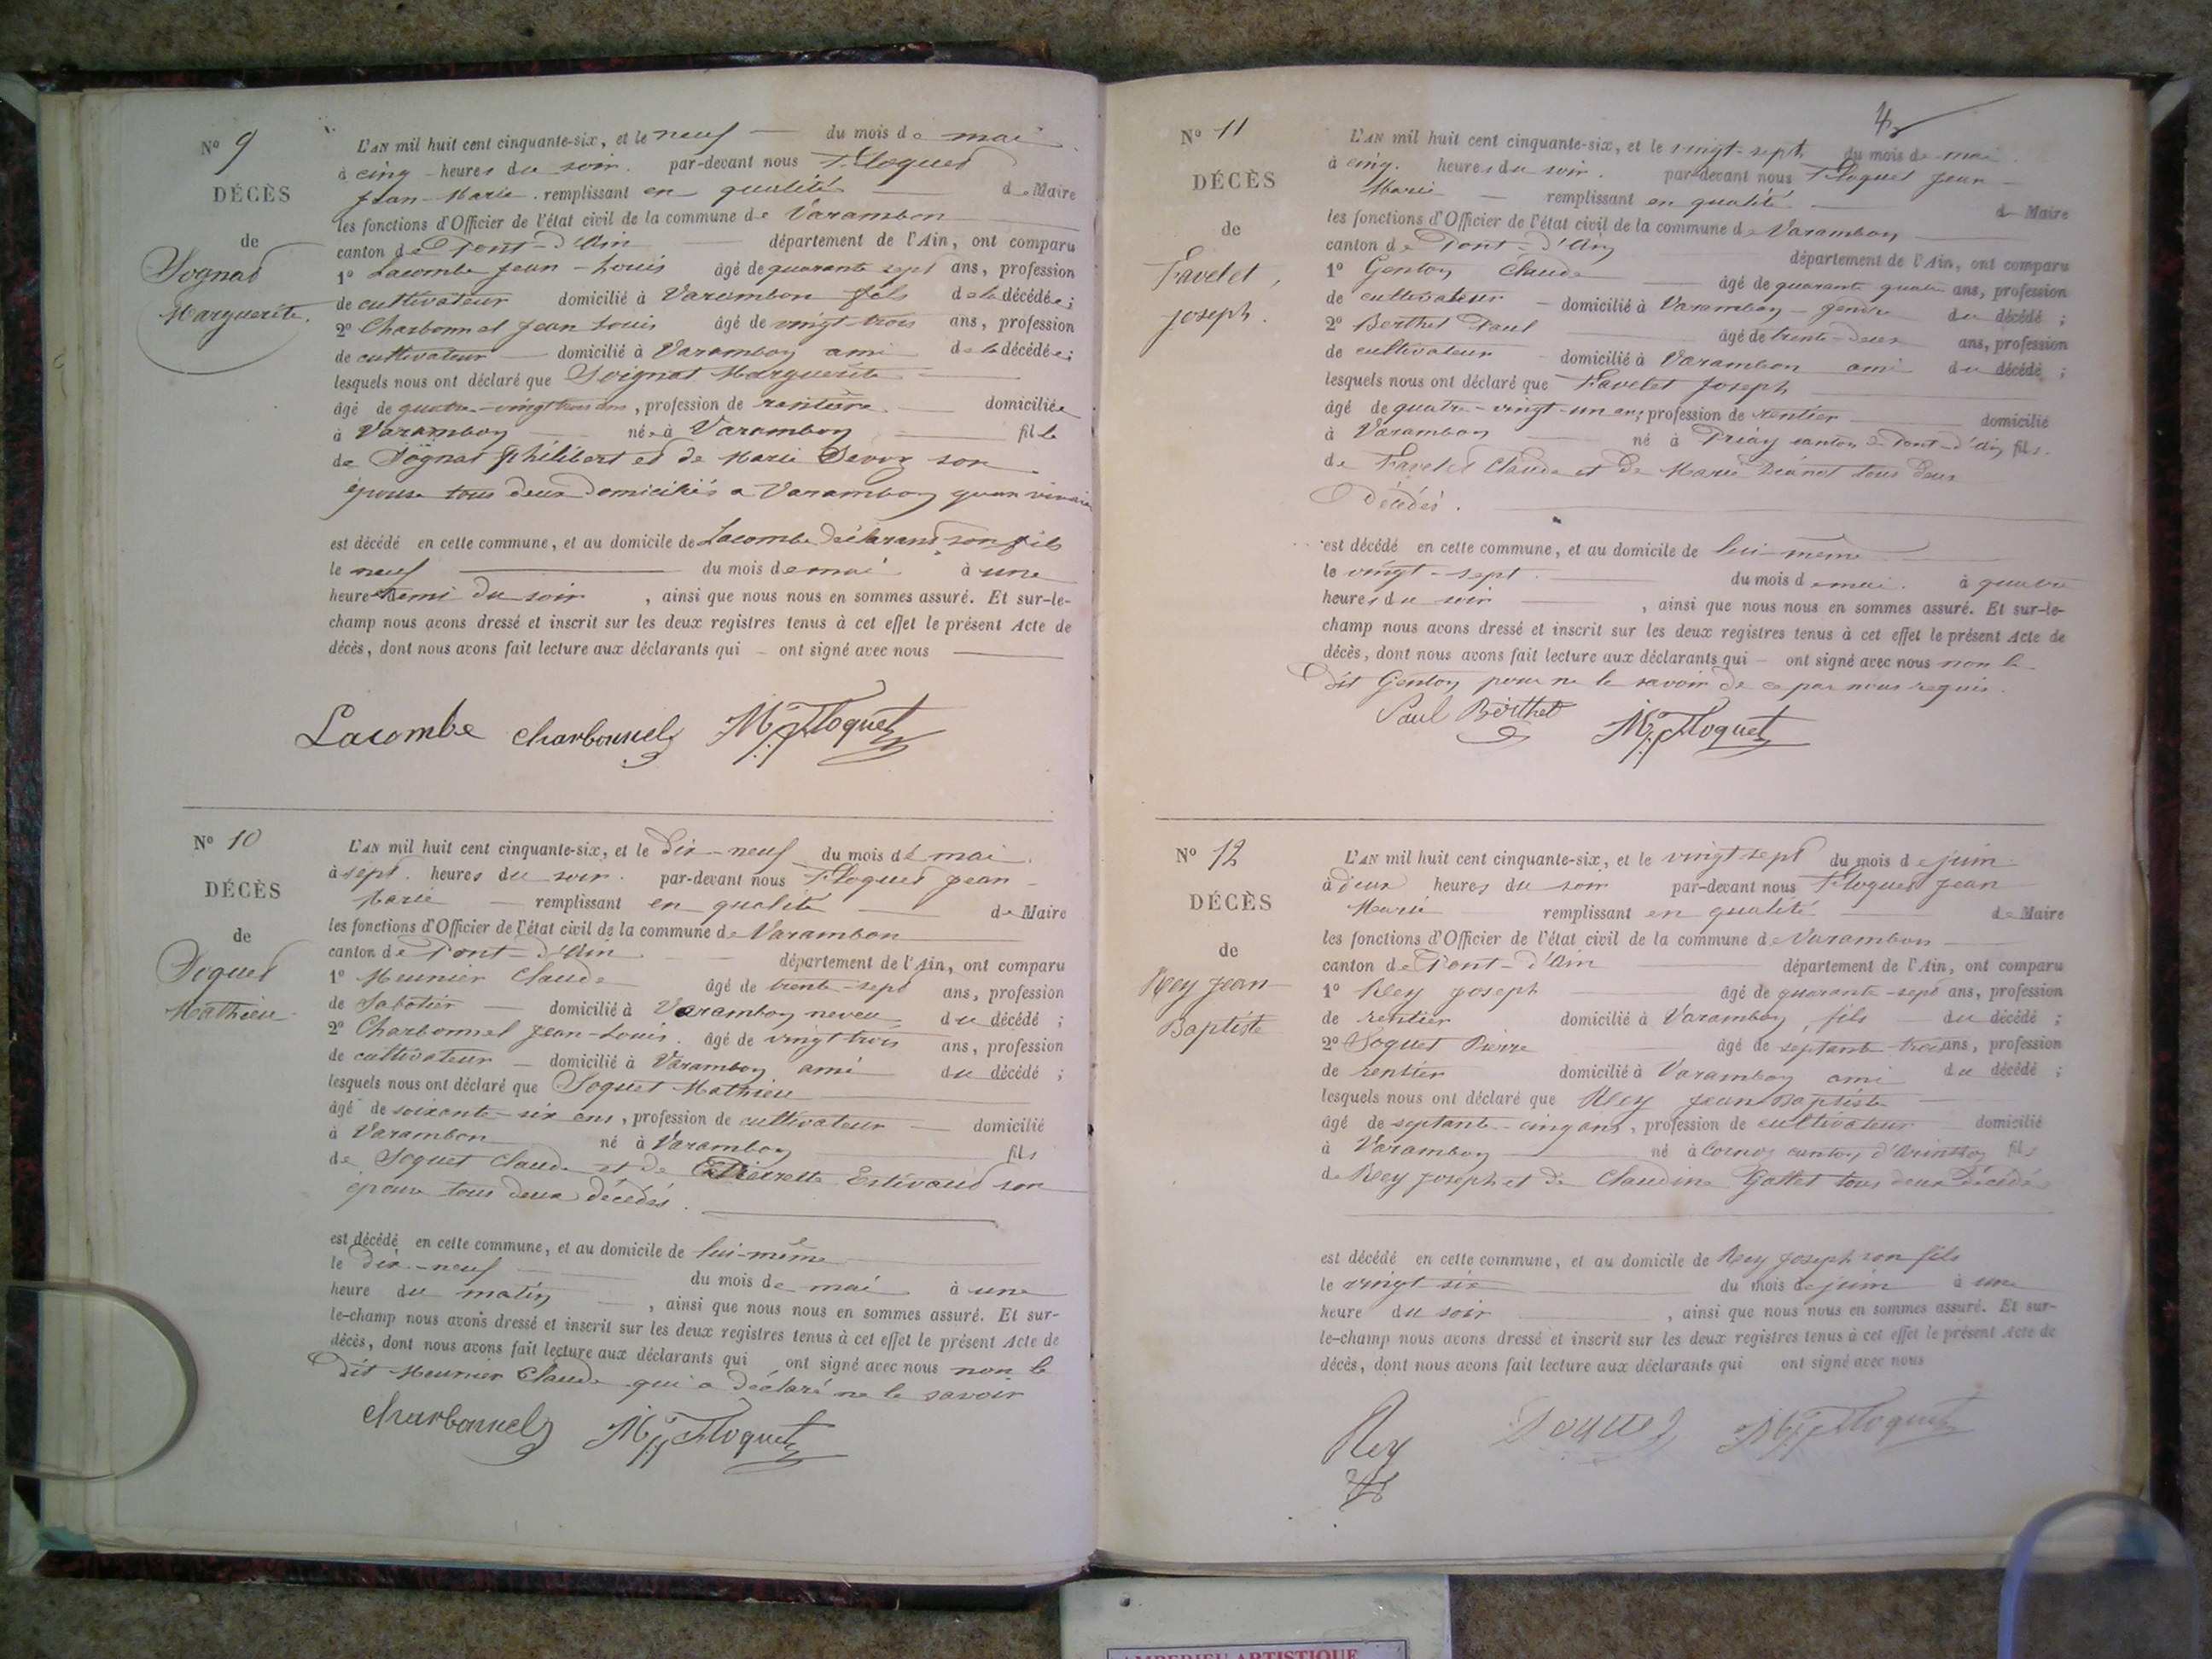 N° 9
DÉCÈS
de
Sognat
Marguerite.
L'AN mil huit cent cinquante-six, et le neuf du mois de mai
à cinq heures du soir. par-devant nous Floquet
Jean-Marie. remplissant en qualité de Maire
les fonctions d'Officier de l'état civil de la commune de Varambon
canton de Pont-d'Ain département de l'Ain, ont comparu
1° Lacombe Jean-Louis âgé de quarante sept ans, profession
de cultivateur domicilié à Varambon fils de la décédée;
2° Charbonnel Jean Louis âgé de vingt-trois ans, profession
de cultivateur domicilié à Varambon ami de la décédée;
lesquels nous ont déclaré que Soignat Marguerite
âgé de quatre-vingt trois ans, profession de rentière. domiciliée
à Varambon née à Varambon fille
de Sognat Philibert et de Marie son
épouse tous deux domiciliés a Varambon
est décédé en cette commune, et au domicile de Lacombe déclarant son fils
le neuf du mois de mai à une
heure demi du soir, ainsi que nous nous en sommes assuré. Et sur-le-
champ nous avons dressé et inscrit sur les deux registres tenus à cet effet le présent Acte de
décès, dont nous avons fait lecture aux déclarants qui ont signé avec nous
Lacombe Charbonnel Floquet
N° 10
DÉCÈS
de
Soquet
Mathieu
L'AN mil huit cent cinquante-six, et le dix-neuf du mois de mai.
à sept. heures du soir. par-devant nous Floquet Jean-
Marie remplissant en qualité de Maire
les fonctions d'Officier de l'état civil de la commune de Varambon
canton de Pont-d'Ain département de l'Ain, ont comparu
1° Meunier Claude âgé de trente-sept ans, profession
de Sabotier domicilié à Varambon neveu du décédé;
2° Charbonnel Jean-Louis. âgé de vingt trois ans, profession
de cultivateur domicilié à Varambon ami du décédé;
lesquels nous ont déclaré que Soquet Mathieu
âgé de soixante-six ans, profession de cultivateur domicilié
à Varambon né à Varambon fils
de Soquet Claude et de Pierrette Estévaud son
épouse tous deux décédés.
est décédé en cette commune, et au domicile de lui-même
le dix-neuf du mois de mai à une
heure du matin, ainsi que nous nous en sommes assuré. Et sur-
le-champ nous avons dressé et inscrit sur les deux registres tenus à cet effet le présent Acte de
décès, dont nous avons fait lecture aux déclarants qui ont signé avec nous non le
dit Meunier Claude qui a déclaré ne le savoir
Charbonnel Floquet
4
N° 11
DÉCÈS
de
Favelet,
Joseph.
L'AN mil huit cent cinquante-six, et le vingt-sept du mois de mai.
à cinq. heures du soir. par-devant nous Floquet Jean-
Marie remplissant en qualité de Maire
les fonctions d'Officier de l'état civil de la commune de Varambon
canton de Pont-d'Ain département de l'Ain, ont comparu
1° Genton Claude âgé de quarante quatre ans, profession
de cultivateur domicilié à Varambon gendre du décédé;
2° Berthet Paul âgé de trente-deux ans, profession
de cultivateur domicilié à Varambon ami du décédé;
lesquels nous ont déclaré que Favelet Joseph
âgé de quatre-vingt-un ans, profession de rentier domicilié
à Varambon né à Priay canton de Pont-d'Ain fils.
de Favelet Claude et de Marie tous deux
décédés.
est décédé en cette commune, et au domicile de lui-même
le vingt-sept du mois de mai. à quatre
heures du soir, ainsi que nous nous en sommes assuré. Et sur-le-
champ nous avons dressé et inscrit sur les deux registres tenus à cet effet le présent Acte de
décès, dont nous avons fait lecture aux déclarants qui ont signé avec nous non le
dit Genton pour ne le savoir de ce par nous requis.
Paul Berthet Floquet
N° 12
DÉCÈS
de
Rey Jean-
Baptiste
L'AN mil huit cent cinquante-six, et le vingt sept du mois de juin
à deux heures du soir par-devant nous Floquet Jean
Marie remplissant en qualité de Maire
les fonctions d'Officier de l'état civil de la commune de Varambon
canton de Pont-d'Ain département de l'Ain, ont comparu
1° Rey Joseph âgé de quarante-sept ans, profession
de rentier domicilié à Varambon, fils du décédé;
2° Soquet Pierre âgé de septante-trois ans, profession
de rentier domicilié à Varambon ami du décédé;
lesquels nous ont déclaré que Rey Jean Baptiste
âgé de septante-cinq ans, profession de cultivateur domicilié
à Varambon né à canton d' fils
de Rey Joseph et de Claudine tous deux décédés
est décédé en cette commune, et au domicile de Rey Joseph son fils
le vingt six du mois de juin à une
heure du soir, ainsi que nous nous en sommes assuré. Et sur-
le-champ nous avons dressé et inscrit sur les deux registres tenus à cet effet le présent Acte de
décès, dont nous avons fait lecture aux déclarants qui ont signé avec nous
Rey Soquet Floquet
AMBERIEU ARTISTIQUE